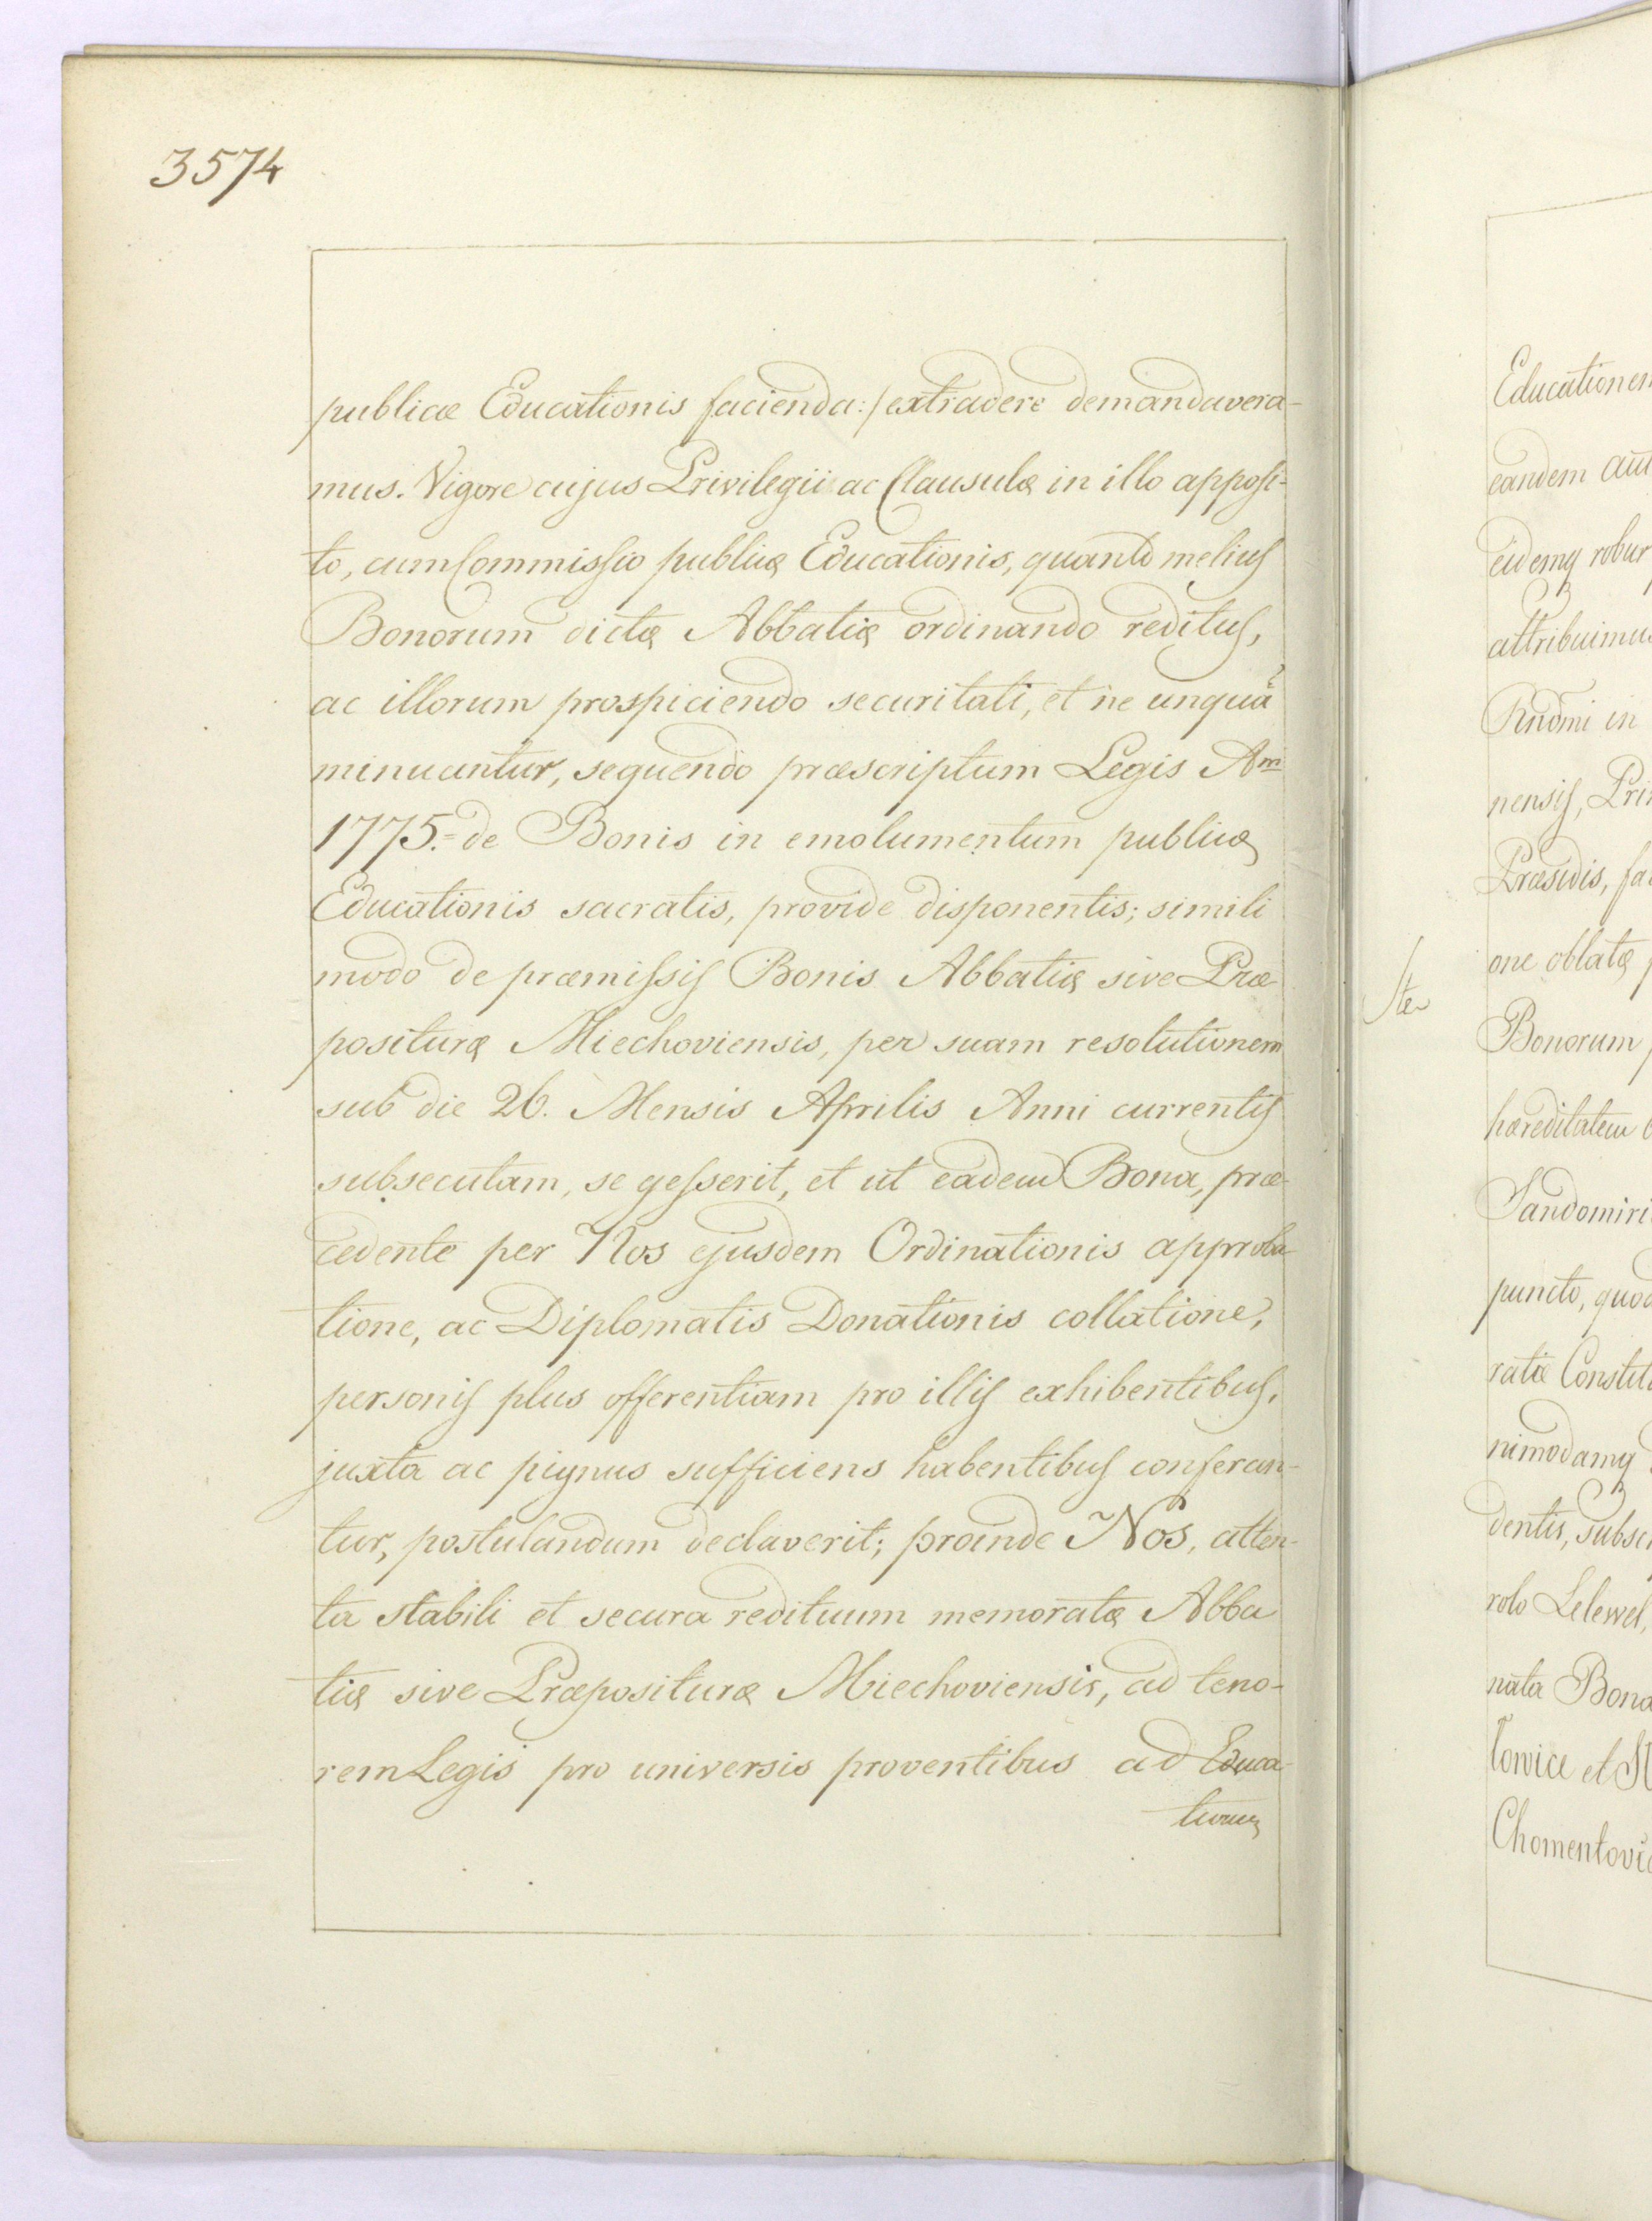 3574
publicæ Educationis facienda:/ extradere demandavera-
mus. Vigore cujus Privilegii ac Clausulæ in illo apposi-
to, cum Commissio publicæ Educationis, quanto melius
Bonorum dictæ Abbatiæ ordinando reditus,
ac illorum prospiciendo securitati, et ne unquā
minuantur, sequendo præscriptum Legis Ani
1775.= de Bonis in emolumentum publicæ
Educationis sacratis, provide disponentis; simili
modo de præmissis Bonis Abbatiæ sive Præ
posituræ Miechoviensis, per suam resolutionem
sub die 26. Mensis Aprilis Anni currentis
subsecutam, se gesserit, et ut eadem Bona, præ-
cedente per Nos ejusdem Ordinationis approba-
tione, ac Diplomatis Donationis collatione,
personis plus offerentiam pro illis exhibentibus,
juxta ac pignus sufficiens habentibus conferan-
tur, postulandum declaverit; proinde Nos, atten-
ta stabili et secura redituum memoratæ Abba
tiæ sive Præposituræ Miechoviensis, ad teno-
rem Legis pro universis proventibus ad Educa-
tionem
Educationem
eandem aut
eidemq robur
attribuimus
Rndmi in
nensis, Prin
Præsidis, fac
one oblatæ p
Bonorum p
hæreditatem
Sandomiri
puncto, quod
ratiæ Constitu
nimodamq
dentis, subscr
rolo Lelewel,
nata Bona
towice et St
Chomentovic